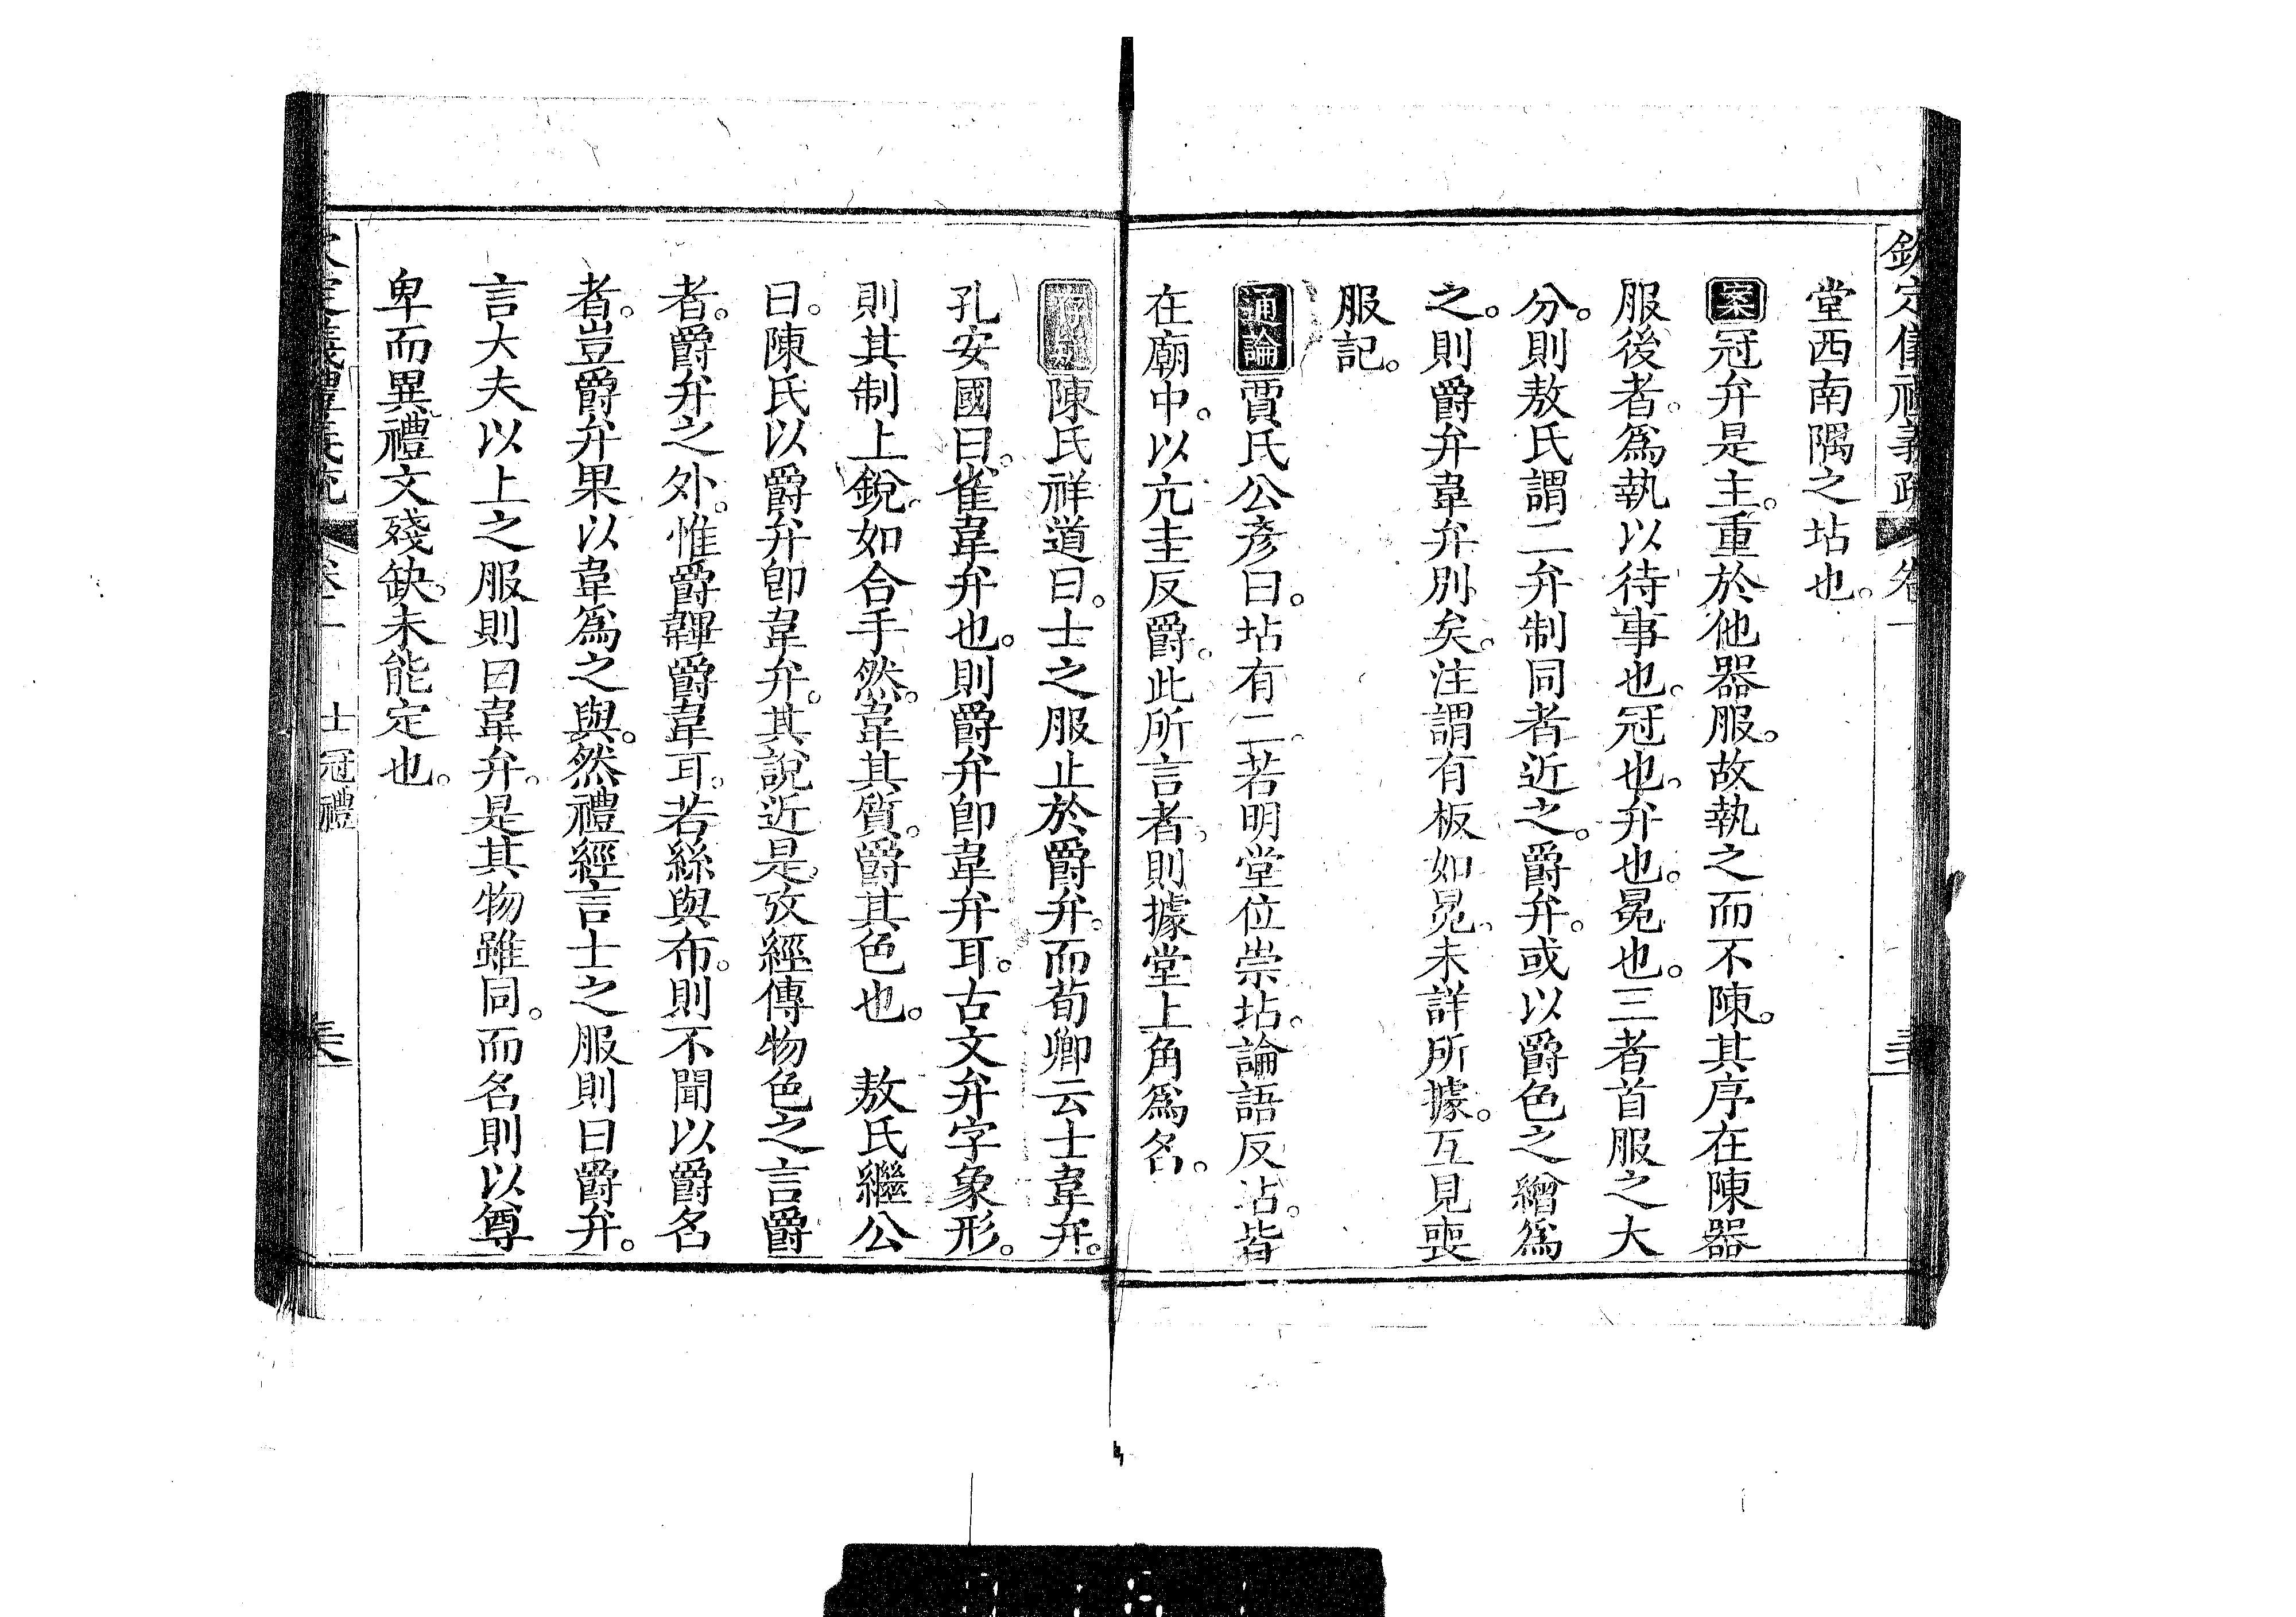 欽定儀禮義疏 卷一
堂西南隅之坫也。
案冠弁是主。重於他器服。故執之而不陳。其序在陳器
服後者。爲執以待事也。冠也。弁也。冕也。三者首服之大
分。則敖氏謂二弁制同者近之。爵弁。或以爵色之繒爲
之。則爵弁韋弁別矣。注謂有板如冕。未詳所據。互見喪
服記。
通論賈氏公彥曰。坫有二。若明堂位崇坫。論語反沾。皆
在廟中。以亢圭反爵。此所言者。則據堂上角爲名。
陳氏祥道曰。士之服止於爵弁。而荀卿云士韋弁。
孔安國曰。雀韋弁也。則爵弁卽韋弁耳。古文弁字象形。
則其制上銳。如合手然。韋其質。爵其色也。 敖氏繼公
曰。陳氏以爵弁卽韋弁。其說近是。攷經傳物色之言爵
者。爵弁之外。惟爵韠爵韋耳。若絲與布。則不聞以爵名
者。豈爵弁果以韋爲之與。然禮經言士之服則曰爵弁。
言大夫以上之服則曰韋弁。是其物雖同。而名則以尊
卑而異。禮文殘缺。未能定也。
士冠禮